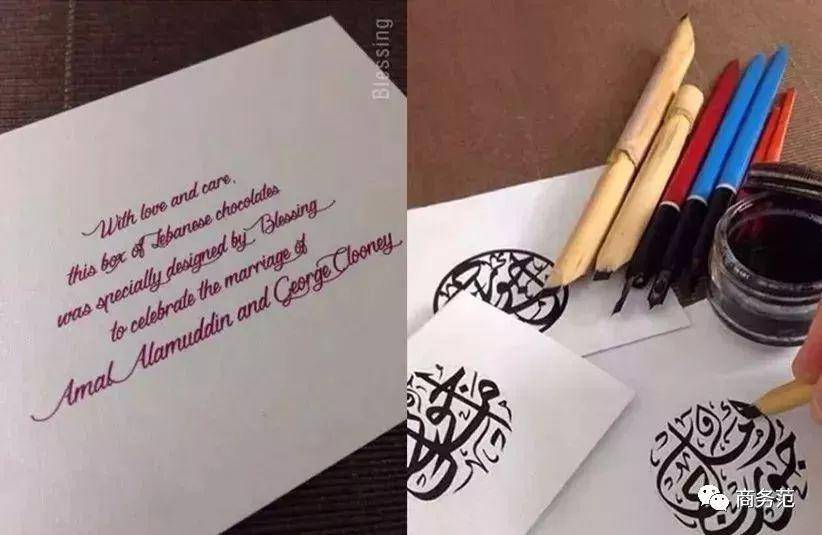 Blessing
With love and care,
this box of Lebanese chocolates
was specially designed by Blessing
to celebrate the marriage of
Amal Alamuddin and George Clooney
商务范